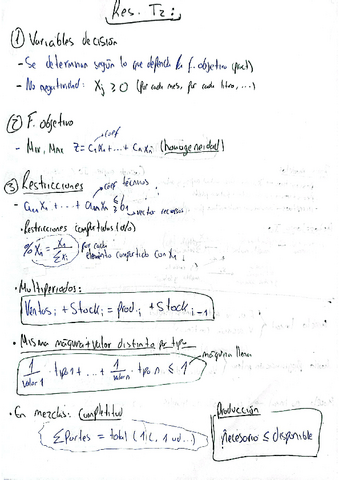 Res. T2:
① Variables decisión
- Se determina según lo que dependa la f. objetivo
- No negatividad: Xj ≥ 0 (por cada mes, por cada litro, ...)
② F. objetivo
coef
- Min, Max Z = C1X1 + ... + CnXi (homogeneidad)
③ Restricciones
coef técnicos
- a11 X1 + ... + a1n Xn ≤ ≥ b1
vector recursos
· Restricciones compartidas (%)
%X1 = X1 / ΣXi
por cada
elemento compartido con X1
· Multiperiodos:
Ventas i + Stock i = prod. i + Stock i-1
· Misma máquina + valor distinto por tipo
1/valor1 · tipo 1 + ... + 1/valor n · tipo n ≤ 1
máquina llena
· En mezclas: Completitud
ΣPartes = total (1L, 1 ud...)
Producción
Necesario ≤ disponible